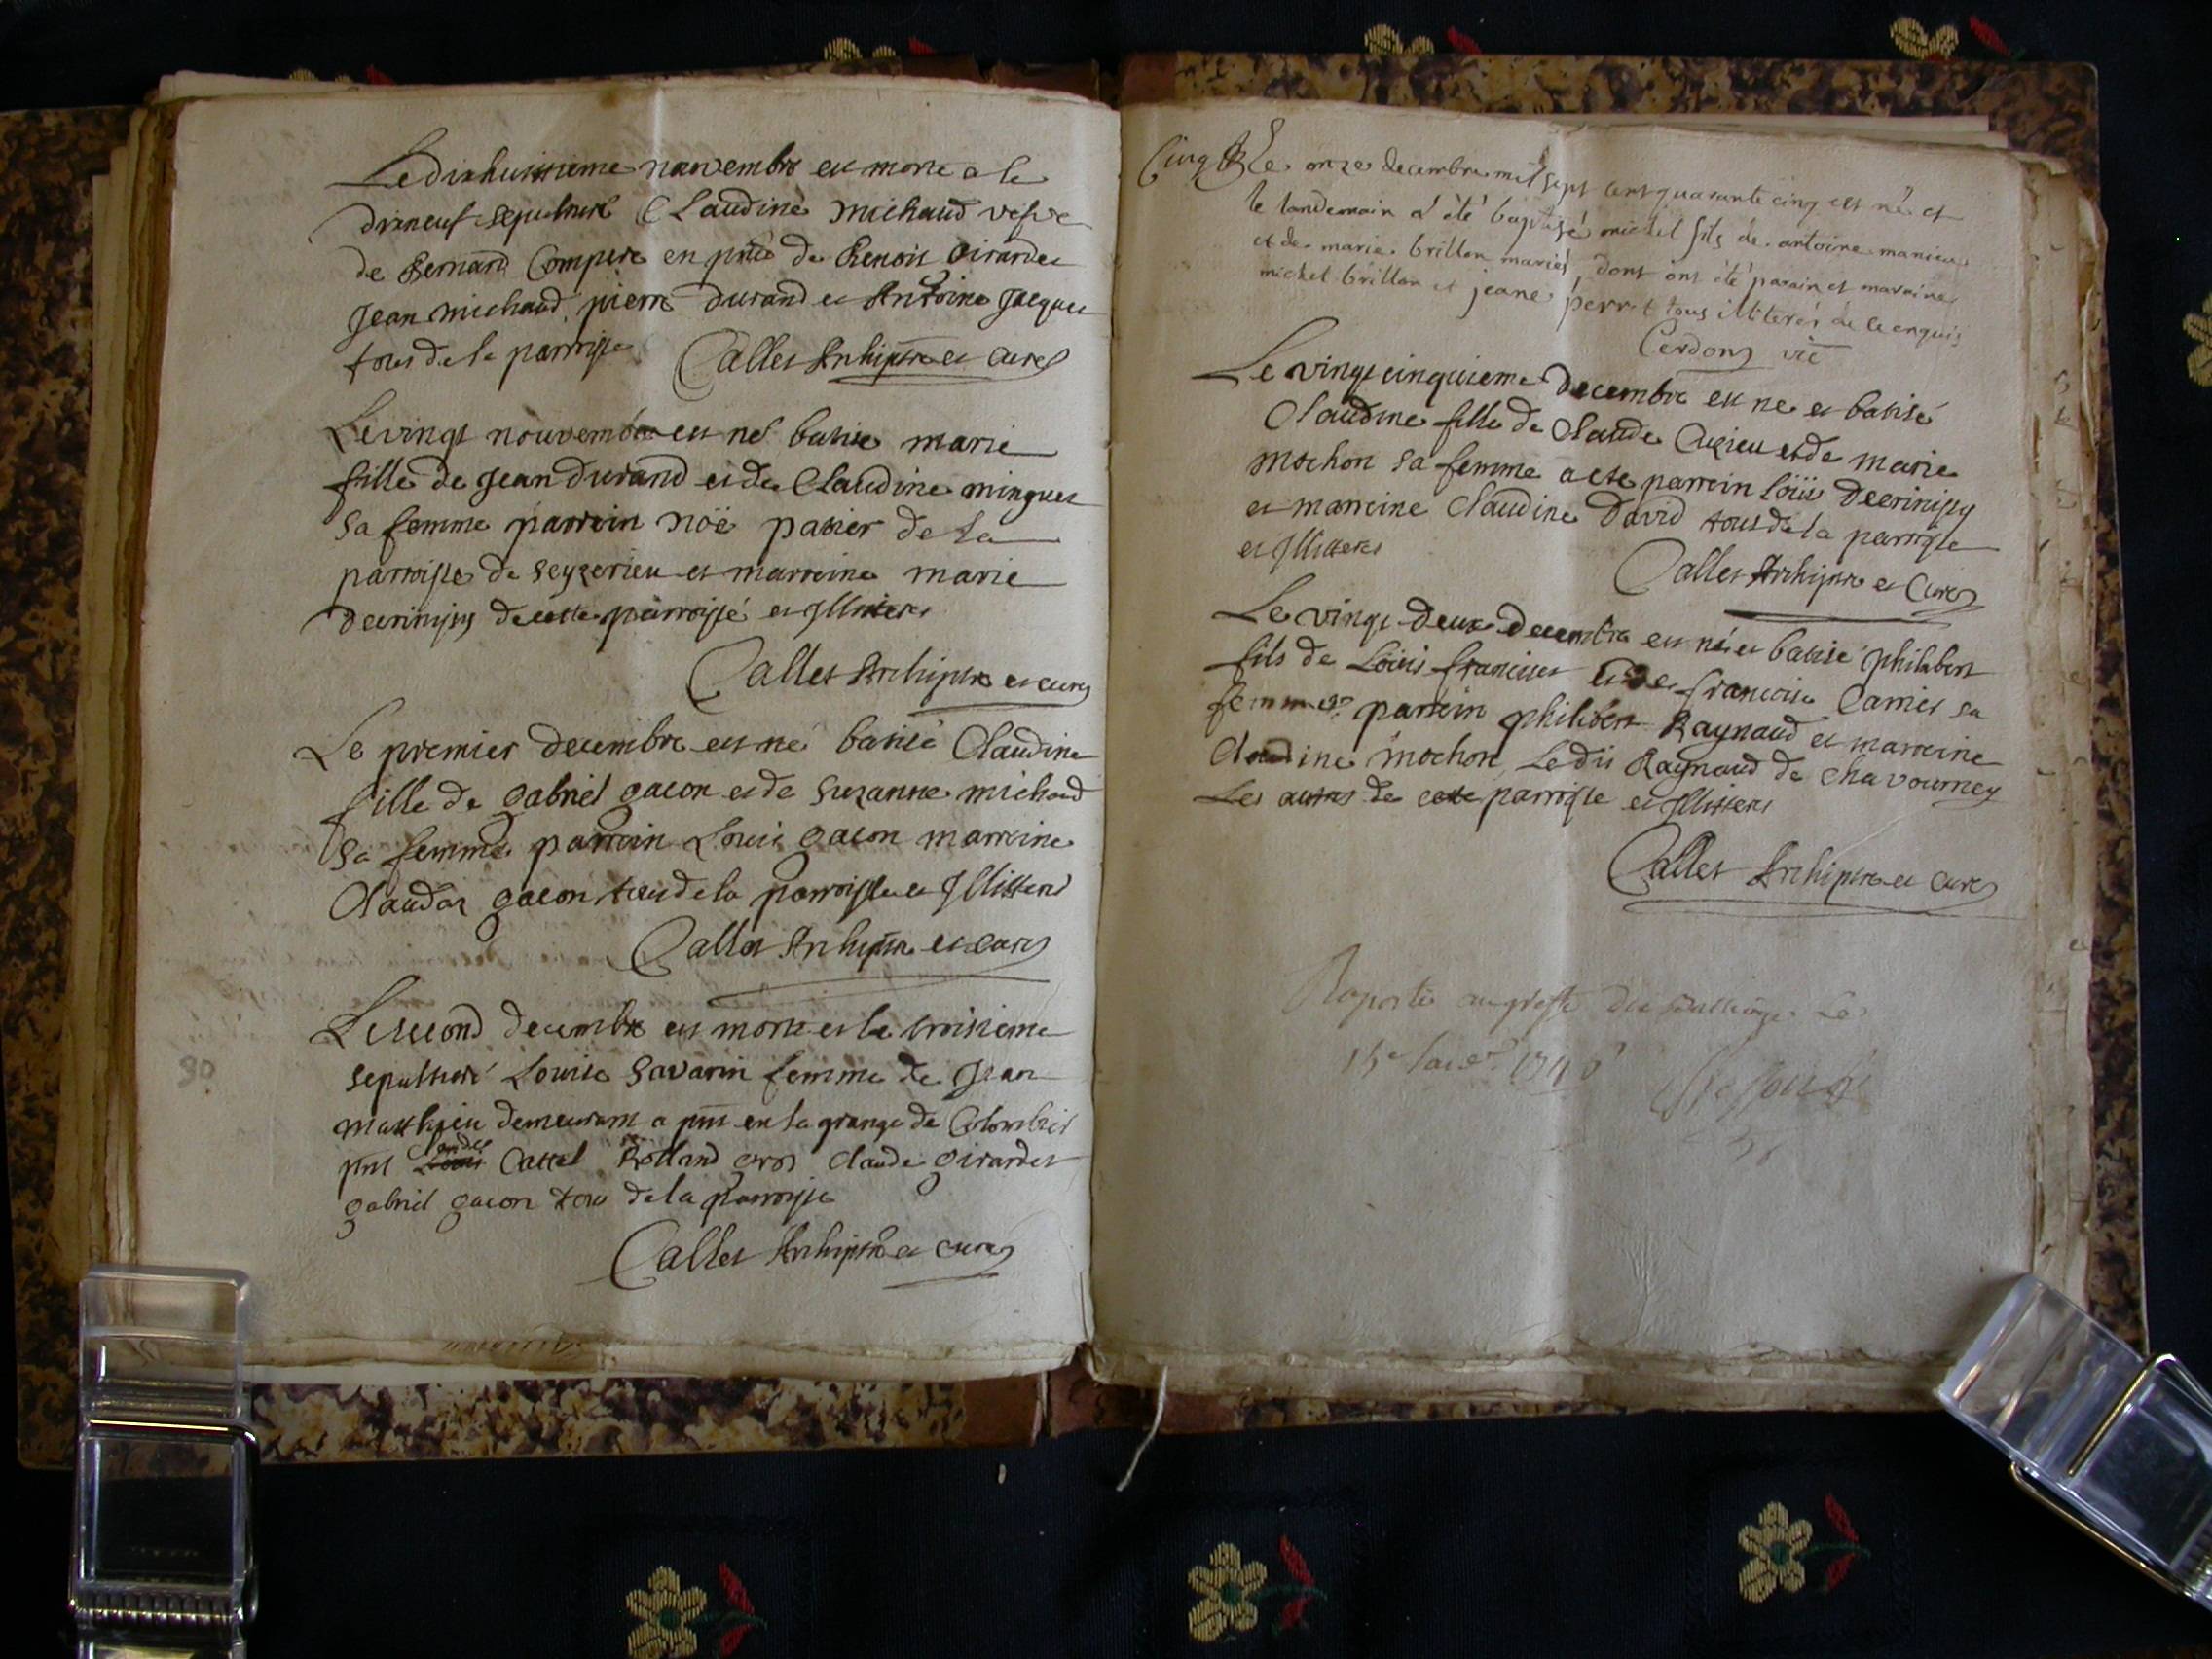 Le dixhuittieme novembre est morte a le
dixneuf sepulture Claudine Michaud vefve
de Bernard Compere en pnce de Benoit Girardet
Jean Michaud, pierre Durand et Antoine Jacquet
tous de la parroisse Callet Archiptre et Curé
Le vingt nouvembre est né batise marie
fille de Jean Durand et de Claudine minguet
sa femme parrein noë patier de la
parroisse de Seyzerieu et marreine marie
decrinisy de cette parroisse et Illitteres
Callet Archiptre et curé
Le premier decembre est né batisé Claudine
fille de gabriel gacon et de Suzanne michaud
Sa femme parrein Louis gacon marreine
Clauda gacon tous de la parroisse et Illitteres
Callet Archiptre et curé
Le second decembre est morte et le troisieme
sepulturé Louise Savarin femme de Jean
Matthieu demeurant a pnt en la grange de Colombier
pnt Cattel Rolland gros Claude girardet
gabriel gacon tous de la parroisse
Callet Archiptre et curé
90
Cinq Le onze decembre mil sept cent quarante cinq est né et
le landemain a été baptisé michel fils de antoine manieu
et de marie brillon mariés, dont ont été parain et maraine
michel brillon et jeane perret tous illiterés de ce enquis
Cerdon vic
Le vingt cinquieme decembre est ne et batisé
Claudine fille de Claude Cuzieu et de marie
Mochon sa femme a ete parrein Loüis Decrinisy
et marreine Claudine David tous de la parroisse
et Illitteres
Callet Archiptre et Curé
Le vingt deux decembre est né et batisé philibert
fils de Loüis et de francoise Carrier sa
femme parrein philibert Raynaud et marreine
Claudine Mochon, Ledit Raynaud de Chavourney
Les autres de cette parroisse et Illitteres
Callet Archiptre et curé
Raporté au greffe du Le
15e 1746